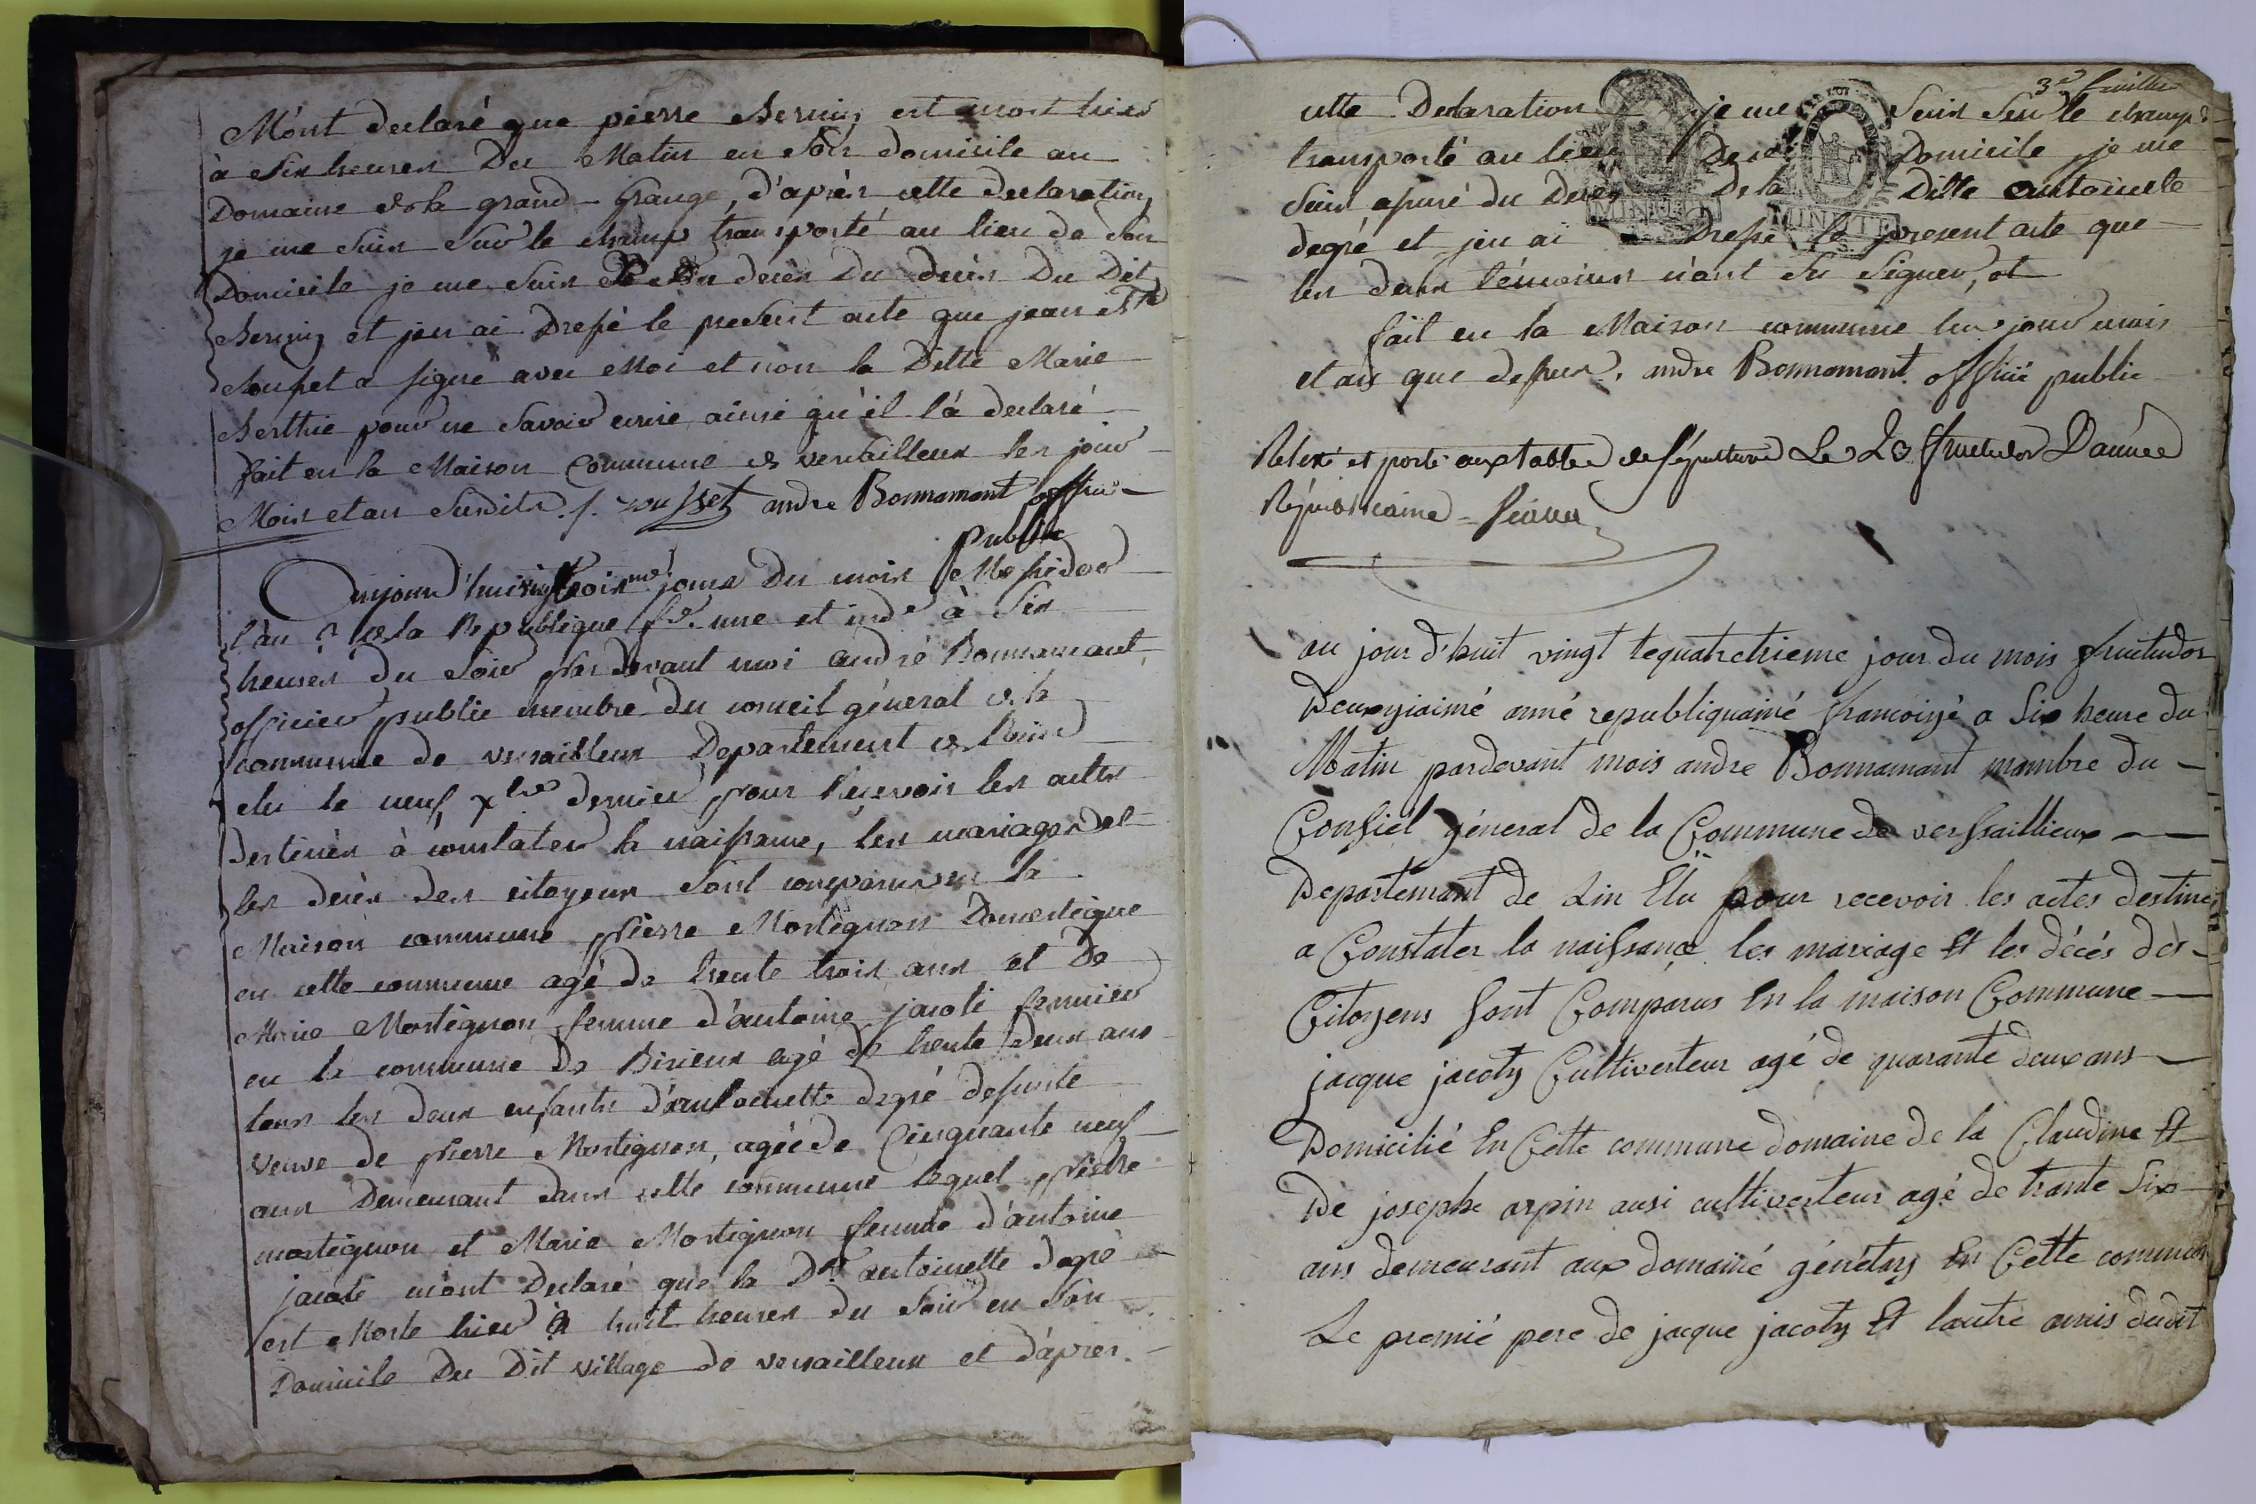 M'ont declaré que pierre est mort hier
à Six heures Du Matin en Son domicile au
Domaine de la grand-Grange, d'après cette declaration
je me Suis Sur le champ transporté au lieu de Son
Domicile je me Suis decès Du decès Du Dit
et j'en ai Dressé le present acte que jean Bte
a signé avec Moi et non la Ditte Marie
Berthie pour ne Savoir ecrire ainsi qu'il l'a declaré
fait en la Maison Commune de versailleux les jour
Mois et an Susdits. andre Bonnamant officié
public
Aujourd'hui vingt trois me jours Du mois Messidor
l'an 2 de la Republique fse. une et inde à Six
heures du Soir par devant moi andré Bonnamant
officier public membre du conseil géneral de la
commune de versailleux Departement de l'ain
elu le neuf xbre dernier pour recevoir les actes
destinés à constater la naissance, les mariages et
les decès des citoyens Sont comparus en la
Maison commune pierre Mortignon Domestique
en cette commune agé de trente trois ans et De
Marie Mortignon femme d'antoine jacoti fermier
en la commune De Birieux agé de trente Deux ans
tous les deux enfants d'antoinette degré defunte
veuve de pierre Mortignon, agée de Cinquante neuf
ans Demeurant dans cette commune lequel pierre
mortignon et Marie Mortignon femme d'antoine
jacoti m'ont Declaré que la Dte antoinette degré
est Morte hier à huit heures du Soir en Son
Domicile Du Dit village de versailleux et d'après
3e feuillet
cette Declaration je me Suis Sur le champ
transporté au lieu De ce Domicile je me
Suis assuré du Decès De la Ditte antoinette
degré et j'en ai Dressé le present acte que
les deux témoins n'ont Su Signer, et
fait en la Maison commune les jour mois
et an que dessus. andre Bonnamant officié public
Relevé et porté aux tables de sépulture Le 20 fructidor D'année
Républicaine
MINUTE
MINUTE
au jour d'huit vingt tequatretrieme jour du mois fructudor
Deuxyiaimé anné republiquainé francoisé a Six heure du
Matin pardevant mois andre Bonnamant mambre du
Consiel géneral de la Commune de versaillieux
Departémant de Lin Elu pour recevoir les actes destinés
a Constater la naissance les mariage Et les décés des
Citoyens Sont Comparus En la maison Commune
jacque jacoty Cultiverteur agé de quarante deux ans
Domicilié En Cette commune domaine de la Claudine Et
De josephe arpin ausi cultiverteur agé de trante Six
ans demeurant aux domainé génétay En Cette commune
Le premié pere de jacque jacoty Et lautre amis dudit